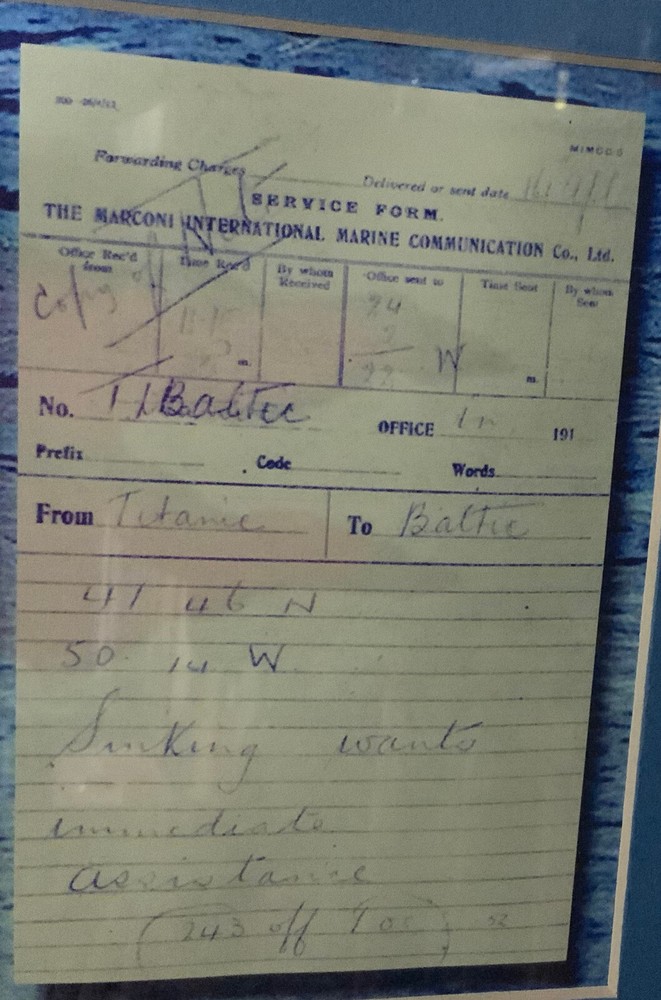 MIMCO 5
Forwarding Charges
Delivered or sent date
SERVICE FORM.
THE MARCONI INTERNATIONAL MARINE COMMUNICATION Co., Ltd.
Office Rec'd from Time Rec'd By whom Received Office sent to Time Sent By whom Sent
Copy of
24
2
22 W
m. m.
No. 11 Baltic
OFFICE 191
Prefix Code Words
From Titanic To Baltic
41 46 N
50 14 W
Sinking wants
immediate
assistance
(243 off